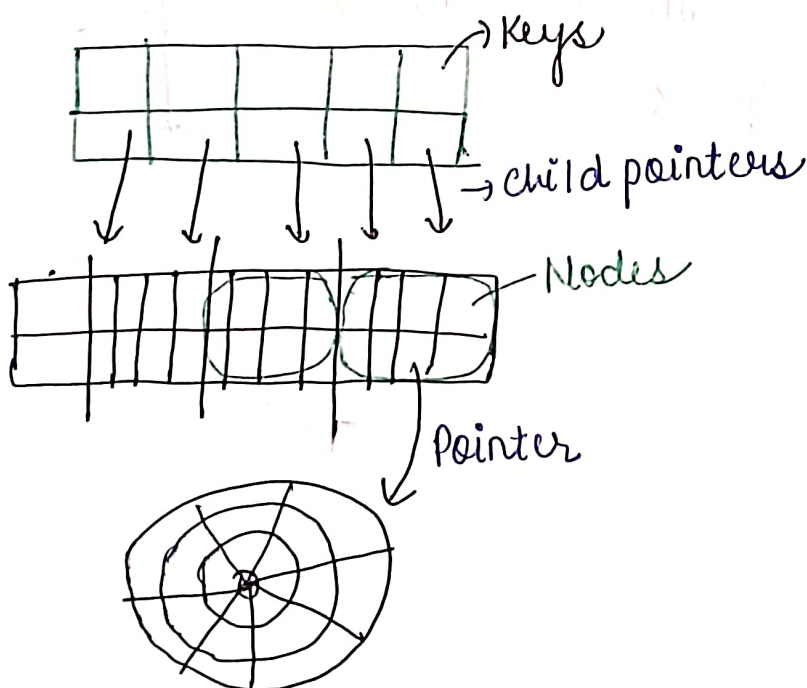 Keys
Child pointers
Nodes
Pointer